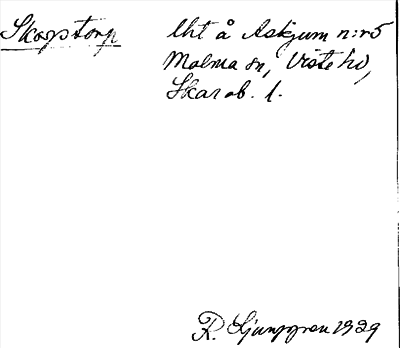 Skogstorp
Uht å Askjum n:r5
Malma sn, Viste hd,
Skarab. l.
R. Ljunggren 1929